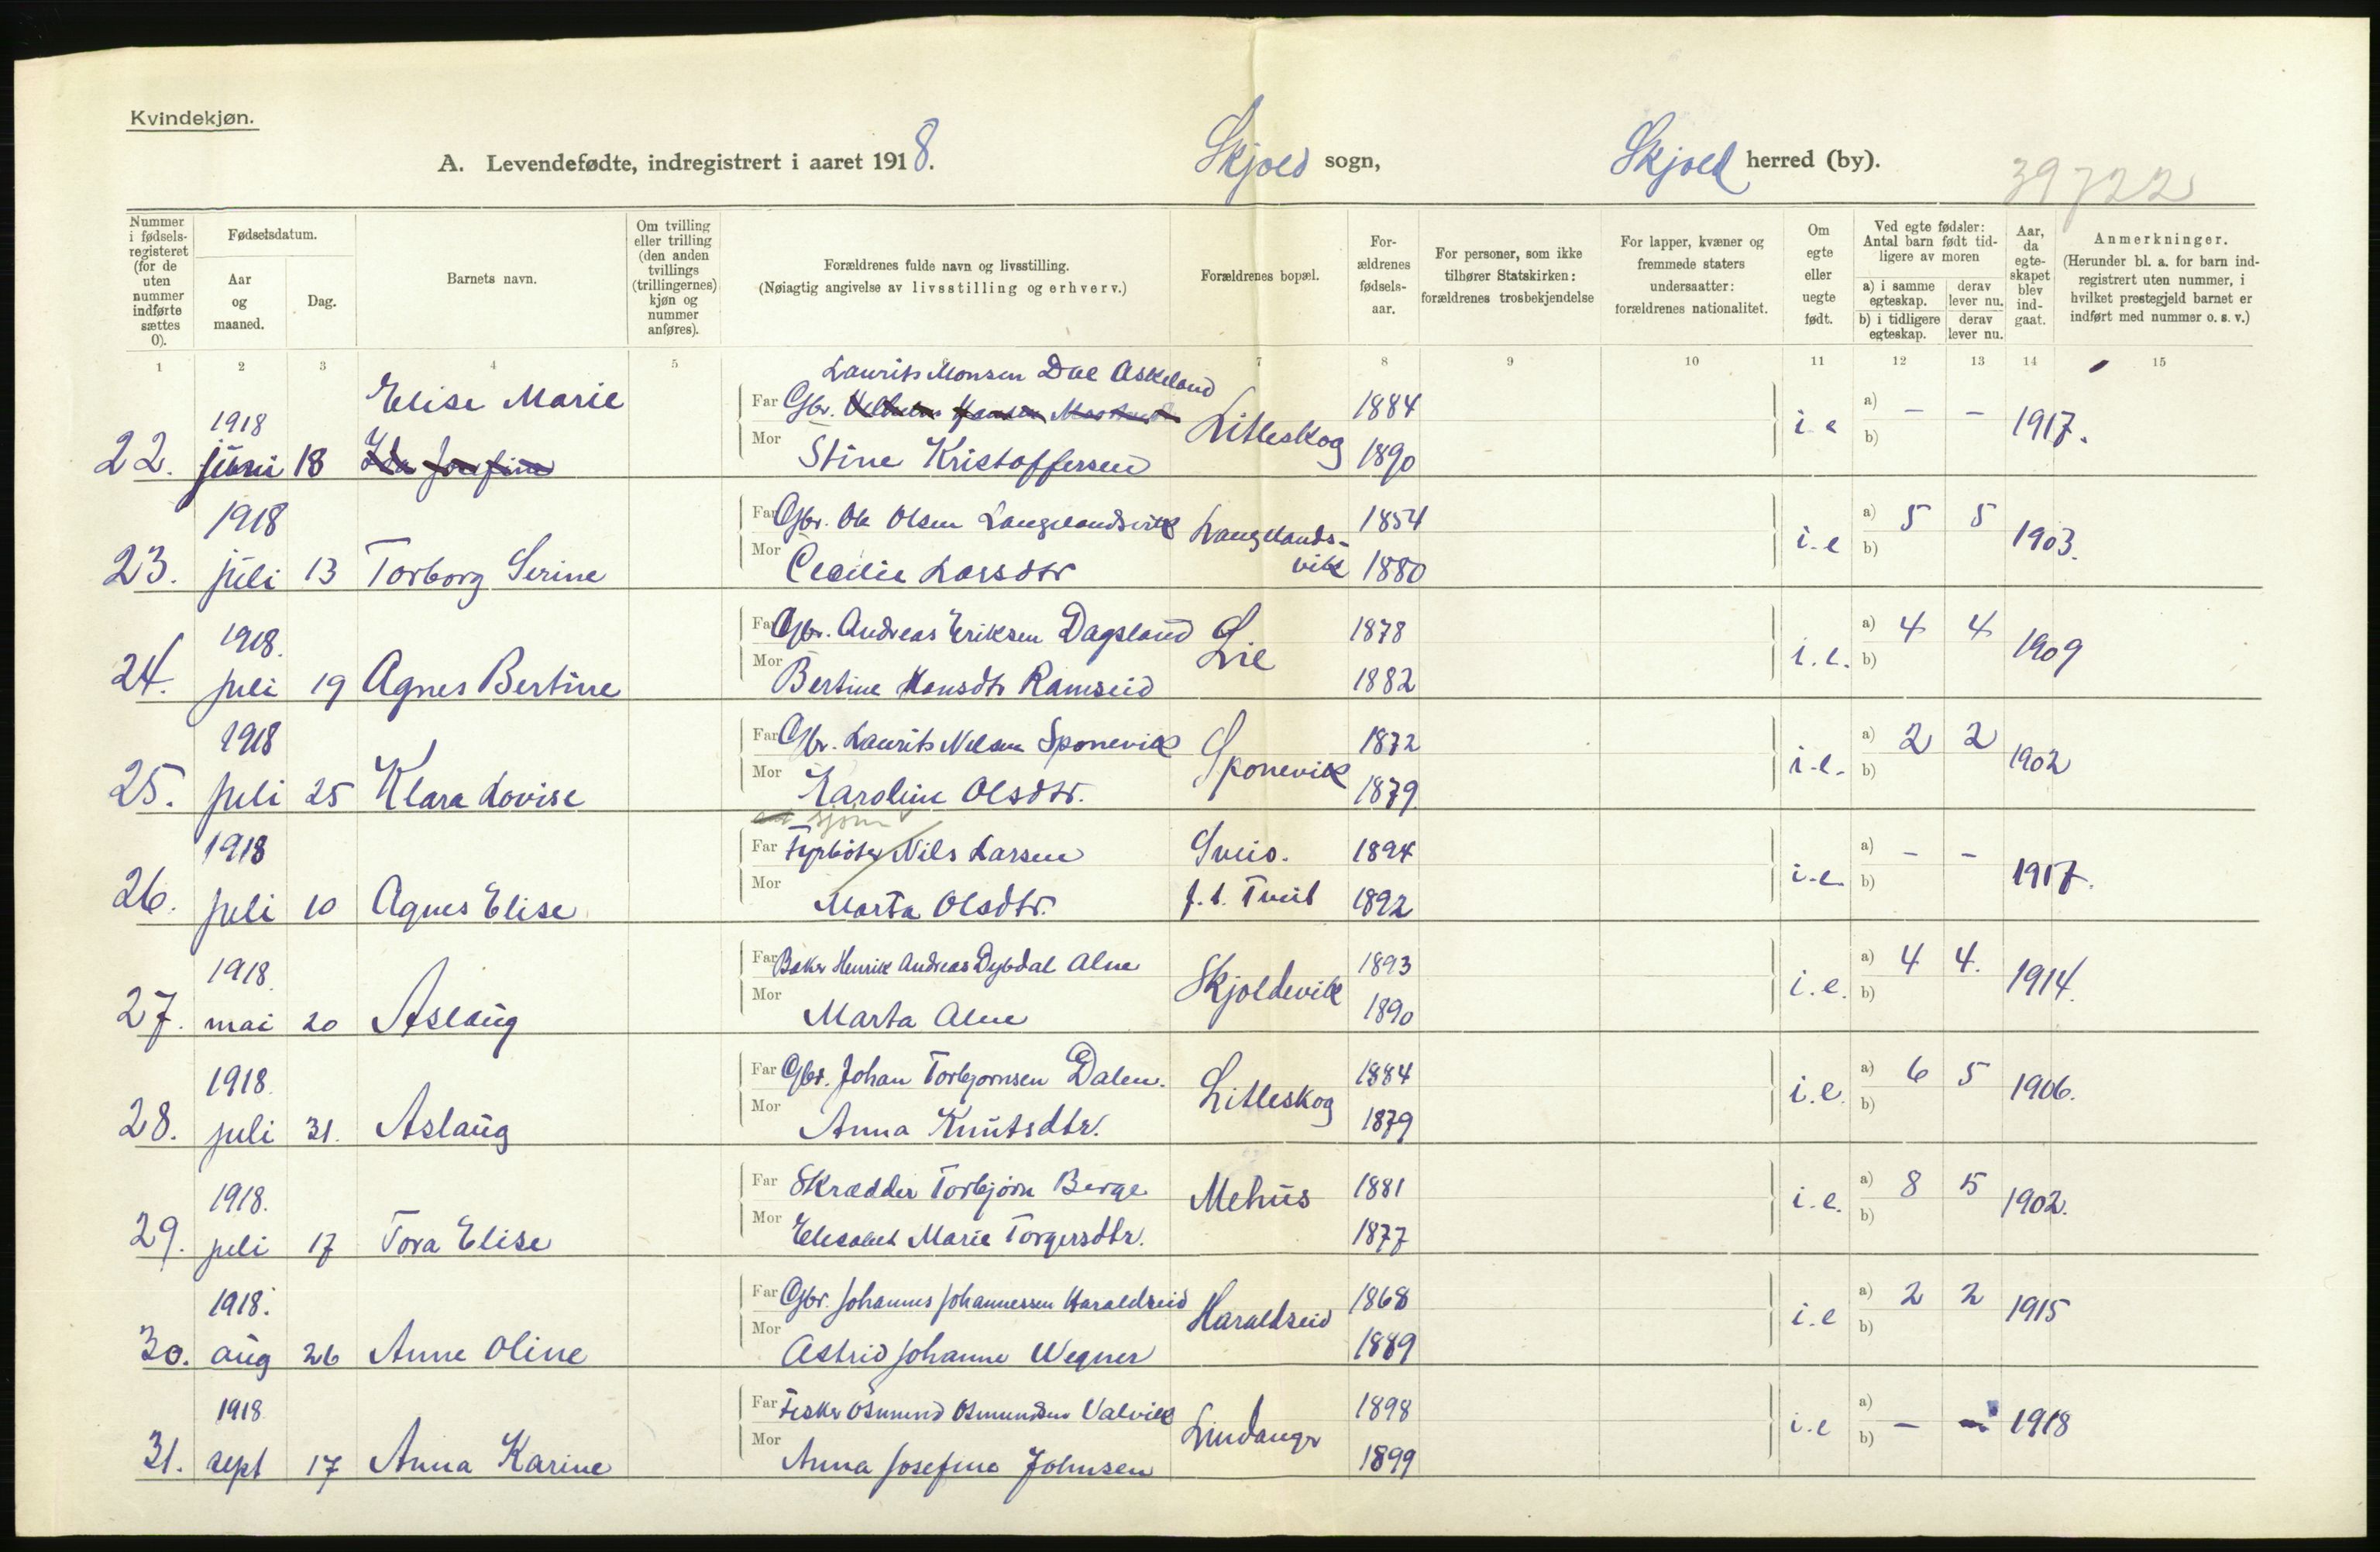 Kvindekjøn.
A. Levendefødte, indregistrert i aaret 1918. Skjold sogn, Skjold herred (by).
39722
Nummer i fødsels-registeret (for de uten nummer indførte sættes 0).
Fødselsdatum.
Aar og maaned.
Dag.
Barnets navn.
Om tvilling eller trilling (den anden tvillings (trillingernes) kjøn og nummer anføres).
Forældrenes fulde navn og livsstilling.
(Nøiagtig angivelse av livsstilling og erhverv.)
Forældrenes bopæl.
For-ældrenes fødsels-aar.
For personer, som ikke tilhører Statskirken: forældrenes trosbekjendelse
For lapper, kvæner og fremmede staters undersaatter: forældrenes nationalitet.
Om egte eller uegte født.
Ved egte fødsler: Antal barn født tid-ligere av moren
a) i samme egteskap. derav lever nu.
b) i tidligere egteskap. derav lever nu.
Aar, da egte-skapet blev ind-gaat.
Anmerkninger.
(Herunder bl. a. for barn ind-registrert uten nummer, i hvilket prestegjeld barnet er indført med nummer o. s. v.)
1 2 3 4 5 7 8 9 10 11 12 13 14 15
Laurits Monsen Dal Askeland
Elise Marie Far Gbr. 1884
22. 1918 juni 18 Ida Josefine Litleskog i.e a) – – b) 1917.
Mor Stine Kristoffersen 1890
Far Gbr. Ole Olsen Langelandsvik 1854
23. 1918 juli 13 Torborg Serine Langelands-vik i.e a) 5 5 b) 1903.
Mor Cecilie Larsdtr 1880
Far Gbr. Andreas Eriksen Dagsland 1878
24. 1918. juli 19 Agnes Bertine Lie i.e. a) 4 4 b) 1909
Mor Bertine Hansdtr Ramseid 1882
Far Gbr. Laurits Nilsen Sponevik 1872
25. 1918 juli 25 Klara Lovise Sponevik i.e. a) 2 2 b) 1902
Mor Karoline Olsdtr. 1879.
sjøm
Far Fyrbøter Nils Larsen Sveio. 1894
26. 1918 juli 10 Agnes Elise i.e. a) – – b) 1917.
Mor Marta Olsdtr. f. t. Tveit 1892
Far Baker Henrik Andreas Dybdal Alne 1893
27. 1918. mai 20 Aslaug Skjoldevik i.e. a) 4 4. b) 1914.
Mor Marta Alne 1890
Far Gbr. Johan Torbjørnsen Dalen. 1884
28. 1918. juli 31. Aslaug Litleskog i.e. a) 6 5 b) 1906.
Mor Anna Knutsdtr. 1879
Far Skrædder Torbjørn Berge 1881
29. 1918. juli 17 Tora Elise Mehus i.e. a) 8 5 b) 1902.
Mor Elisabet Marie Torgersdtr. 1877
Far Gbr. Johannes Johannessen Haraldseid 1868
30. 1918. aug 26 Anne Oline Haraldseid i.e a) 2 2 b) 1915
Mor Astrid Johanne Wegner 1889
Far Fisker Osmund Osmundsen Valvik 1898
31. 1918 sept 17 Anna Karine Lindanger i.e a) b) – – 1918
Mor Anna Josefine Johnsen 1899